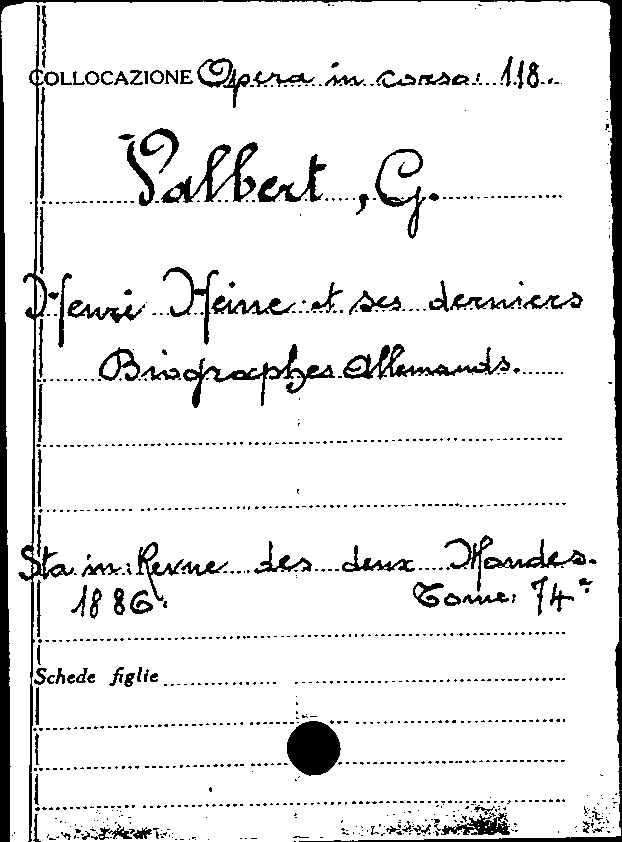 COLLOCAZIONE Opera in corso: 118.
Valbert, G.
Henri Heine et ses derniers
Biographes Allemands.
Sta in: Revue des deux Mondes.
1886. Tome: 74e
Schede figlie